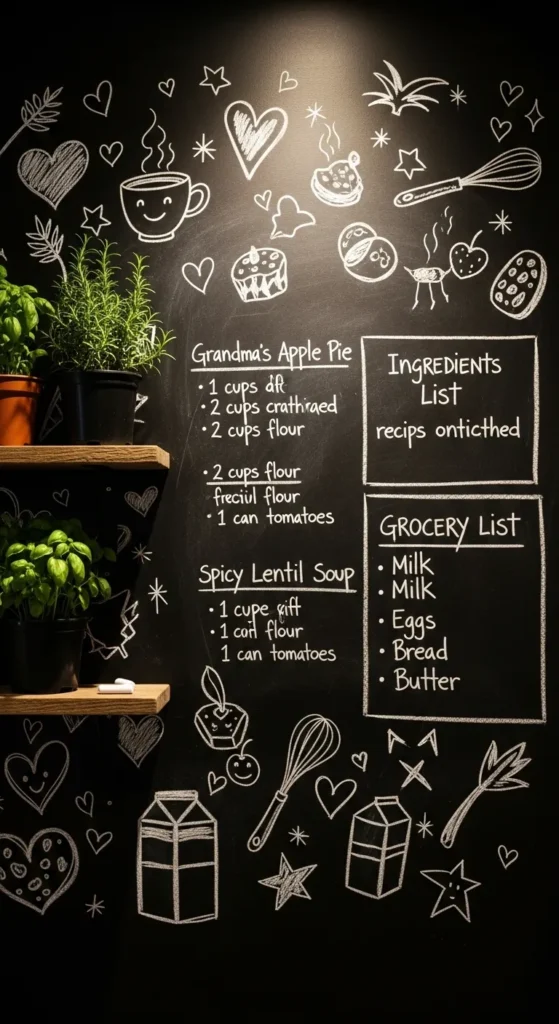 Grandma's Apple Pie
• 1 cups
• 2 cups
• 2 cups flour
• 2 cups flour
freciil flour
• 1 can tomatoes
Spicy Lentil Soup
• 1 cupe
• 1 flour
1 can tomatoes
Ingredients
List
recips onticthed
GROCERY LIST
• Milk
• Milk
• Eggs
• Bread
• Butter